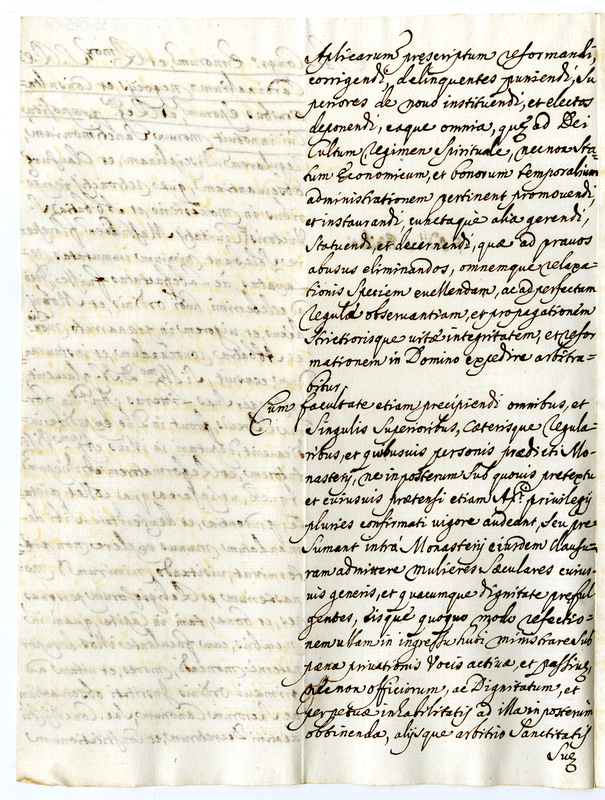 Aplicarum prescriptum reformandi,
corrigendi, delinquentes puniendi, Su
periores de novo instituendi, et electos
deponendi, eaque omnia, quę ad Dei
Cultum regimen spirituale, necnon sta-
tum Economicum, et bonorum temporalium
administrationem pertinent promovendi,
et instaurandi, cunctaque alia gerendi,
statuendi, et decernendi, quæ ad pravos
abusus eliminandos, omnemque relaxa-
tionis speciem evellendam, ac ad perfectam
regulæ observantiam, et propagationem
strictiorisque vitæ integritatem, et refor
mationem in Domino expedire arbitra-
bitur,
Cum facultate etiam precipiendi omnibus, et
singulis Superioribus, cæterisque regula-
ribus, et quibusvis personis prædicti Mo-
nasterij, ne inposterum sub quovis pretextu
et cuiusvis prætensi etiam Ap.ci privilegij
pluries confirmati vigore audeant, seu pre
sumant intrà Monasterij eiusdem clausu-
ram admittere mulieres sæculares cuius-
vis generis, et quacumque dignitate preful
gentes, eisque quoquo modo refectio-
nem ullam in ingressu huiusmodi ministrare sub
pæna privationis vocis activæ, et passivę,
nec non officiorum, ac Dignitatum, et
perpetuæ inhabilitatis ad illa inposterum
obtinenda, alijsque arbitrio Sanctitatis
Suę